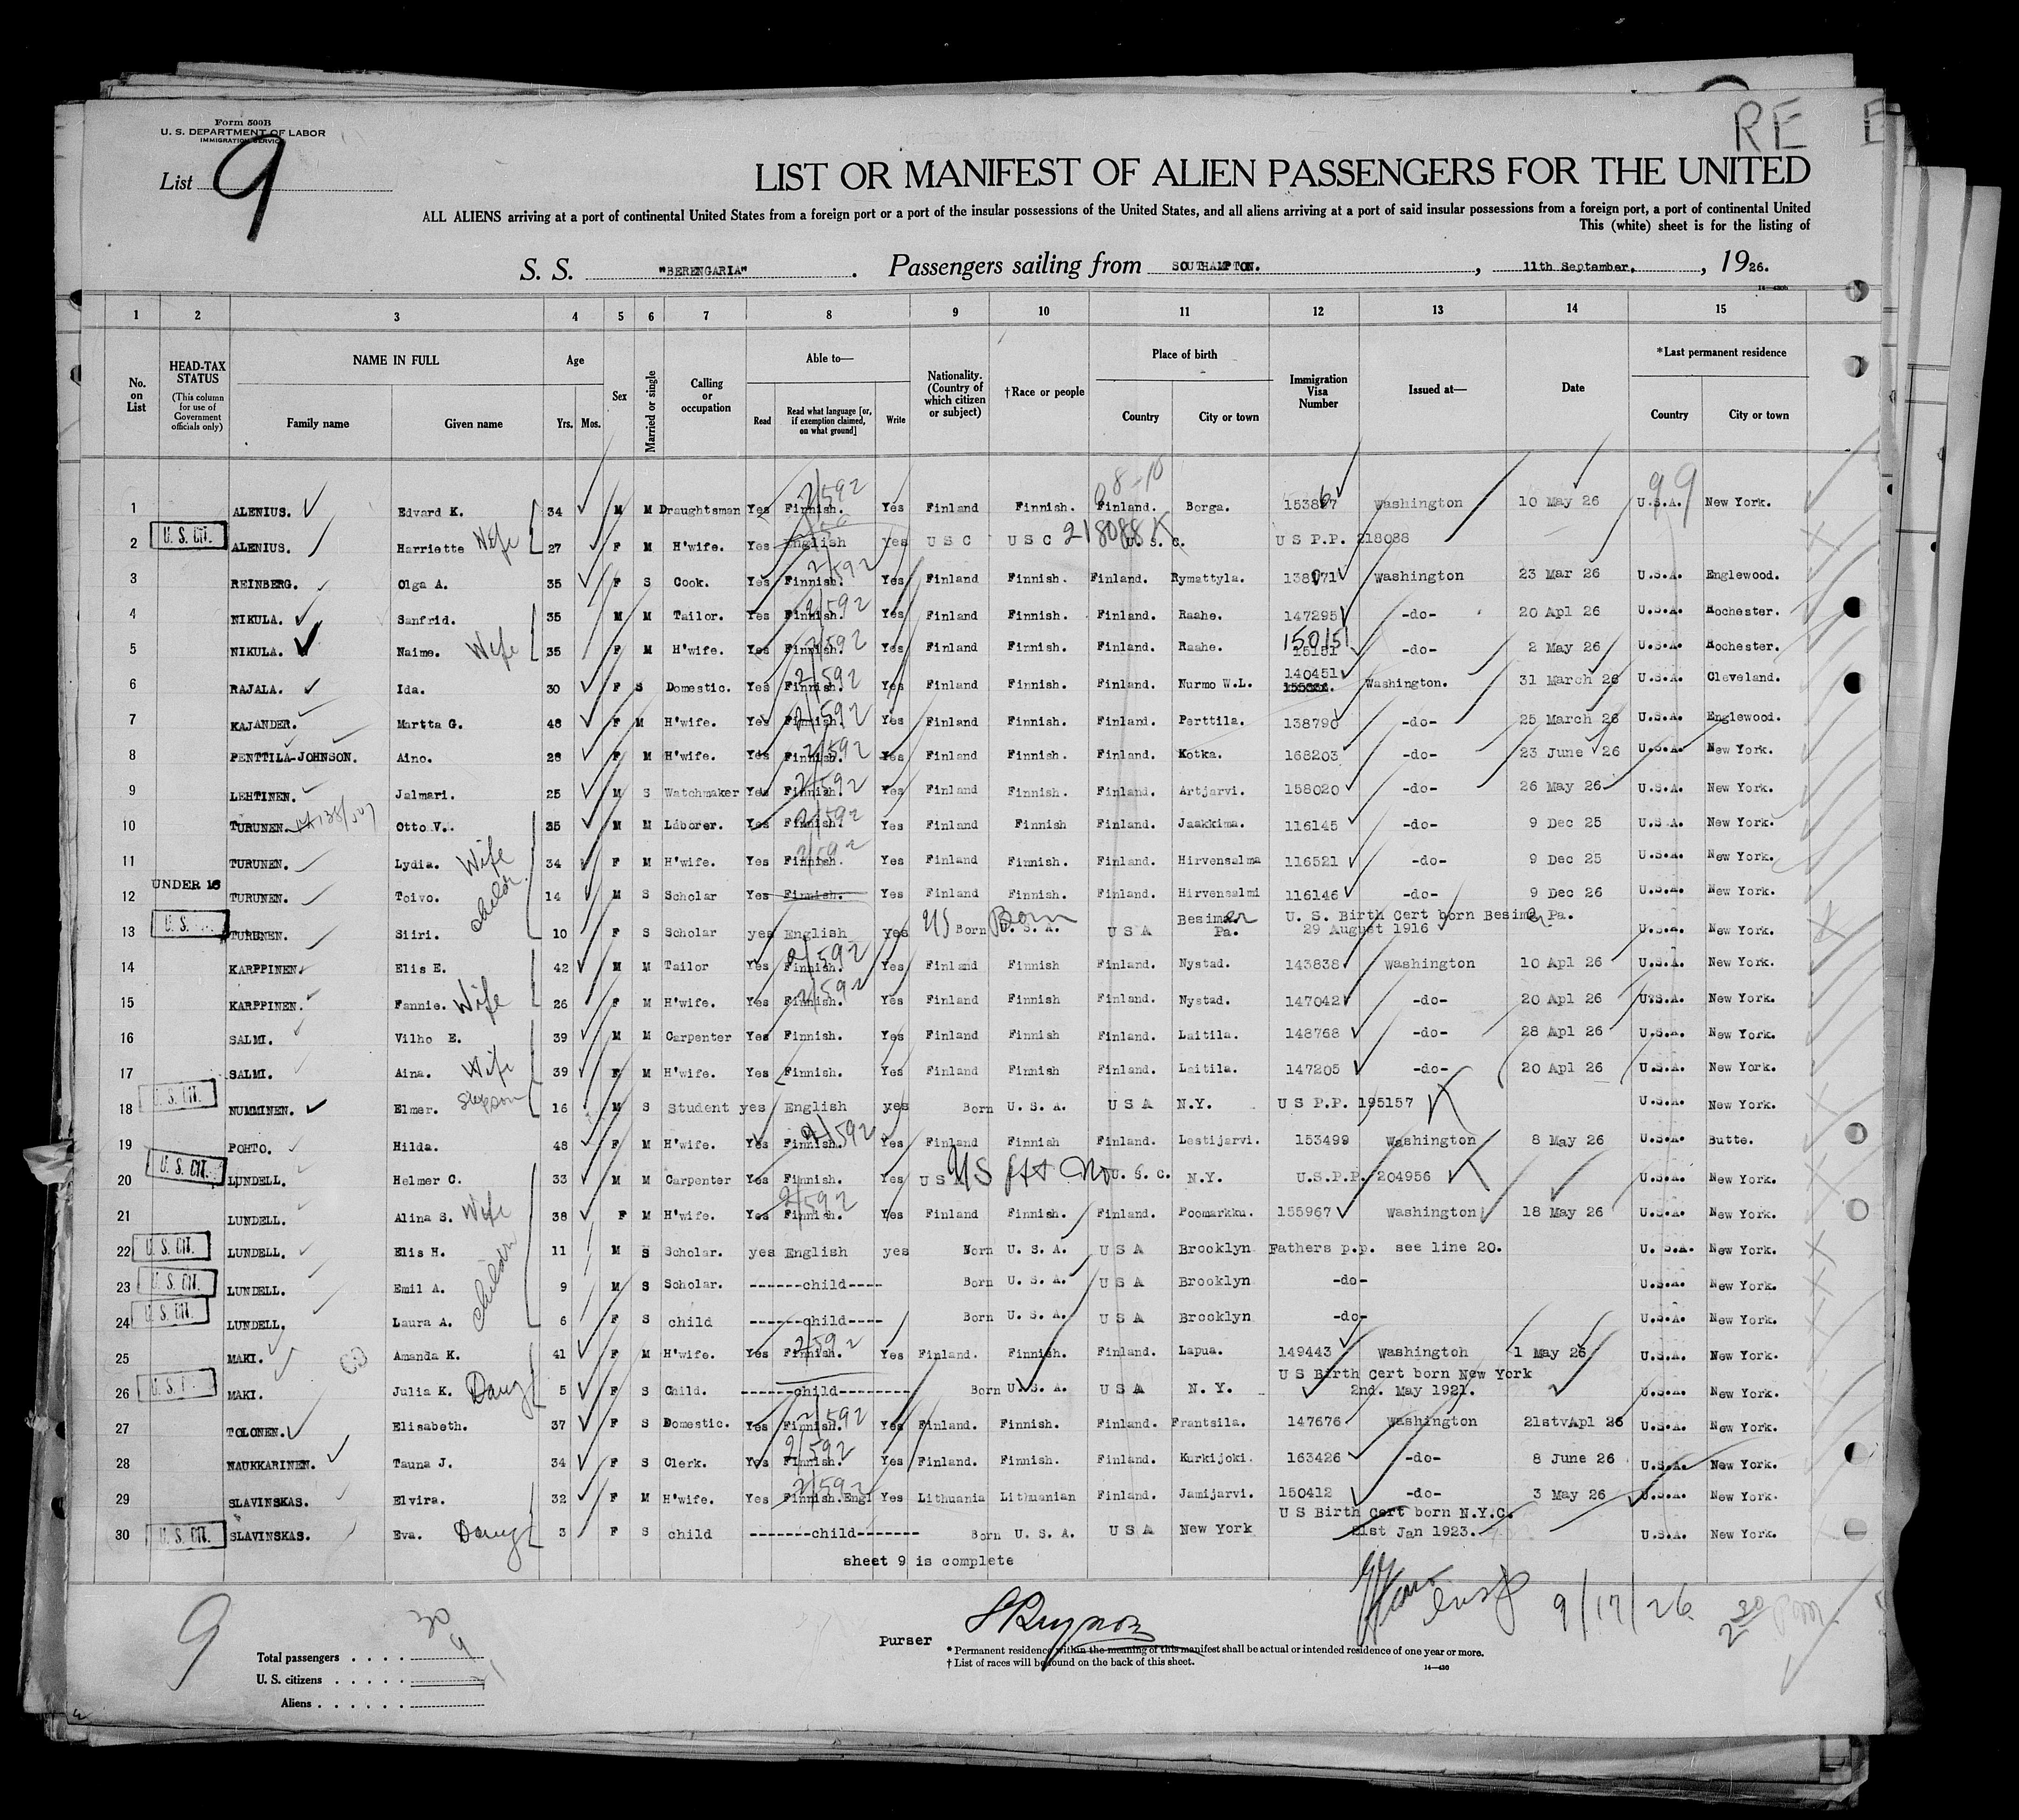 RE
E
Form 500B
U. S. DEPARTMENT OF LABOR
IMMIGRATION SERVICE
List 9
LIST OR MANIFEST OF ALIEN PASSENGERS FOR THE UNITED
ALL ALIENS arriving at a port of continental United States from a foreign port or a port of the insular possessions of the United States, and all aliens arriving at a port of said insular possessions from a foreign port, a port of continental United
This (white) sheet is for the listing of
S. S. "BERENGARIA". Passengers sailing from SOUTHAMPTON. , 11th September. , 1926.
1 2 3 4 5 6 7 8 9 10 11 12 13 14 15
No. on List
HEAD-TAX STATUS (This column for use of Government officials only)
NAME IN FULL
Family name Given name
Age
Yrs. Mos.
Sex
Married or single
Calling or occupation
Able to—
Read Read what language [or, if exemption claimed, on what ground] Write
Nationality. (Country of which citizen or subject)
†Race or people
Place of birth
Country City or town
Immigration Visa Number
Issued at—
Date
*Last permanent residence
Country City or town
1 ALENIUS. Edvard K. 34 M M Draughtsman Yes Finnish. 2/592 Yes Finland Finnish. Finland. Borga. Washington 10 May 26 U.S.A. 99 New York.
U. S. CIT. 2 ALENIUS. Harriette Wife 27 F M H'wife. Yes English Yes U S C U S C 218088 U. S. C. U S P.P. 218088
3 REINBERG. Olga A. 35 F S Cook. Yes Finnish. 2/592 Yes Finland Finnish. Finland. Rymattyla. 138071 Washington 23 Mar 26 U.S.A. Englewood.
4 NIKULA. Sanfrid. 35 M M Tailor. Yes Finnish. 2/592 Yes Finland Finnish. Finland. Raahe. 147295 -do- 20 Apl 26 U.S.A. Rochester.
5 NIKULA. Naimo. Wife 35 F M H'wife. Yes Finnish. 2/592 Yes Finland Finnish. Finland. Raahe. 150151 15151 -do- 2 May 26 U.S.A. Rochester.
6 RAJALA. Ida. 30 F S Domestic. Yes Finnish. 2/592 Yes Finland Finnish. Finland. Nurmo W.L. 140451 Washington. 31 March 26 U.S.A. Cleveland.
7 KAJANDER. Martta G. 48 F M H'wife. Yes Finnish. 2/592 Yes Finland Finnish. Finland. Perttila. 138790 -do- 25 March 26 U.S.A. Englewood.
8 PENTTILA-JOHNSON. Aino. 28 F M H'wife. Yes Finnish. 2/592 Yes Finland Finnish. Finland. Kotka. 168203 -do- 23 June 26 U.S.A. New York.
9 LEHTINEN. Jalmari. 25 M S Watchmaker Yes Finnish. 2/592 Yes Finland Finnish. Finland. Artjarvi. 158020 -do- 26 May 26 U.S.A. New York.
10 TURUNEN. Otto V. 35 M M Laborer. Yes Finnish. 2/592 Yes Finland Finnish Finland. Jaakkima. 116145 -do- 9 Dec 25 U.S.A. New York.
11 TURUNEN. Lydia. Wife 34 F M H'wife. Yes Finnish. 2/592 Yes Finland Finnish. Finland. Hirvensalma 116521 -do- 9 Dec 25 U.S.A. New York.
UNDER 16 12 TURUNEN. Toivo. Childr. 14 M S Scholar Yes Finnish. Yes Finland Finnish. Finland. Hirvensalmi 116146 -do- 9 Dec 26 U.S.A. New York.
U. S. 13 TURUNEN. Siiri. 10 F S Scholar yes English yes US Born Born U. S. A. U S A Besimer Pa. U. S. Birth Cert born Besimer Pa. 29 August 1916 U.S.A. New York.
14 KARPPINEN. Elis E. 42 M M Tailor Yes Finnish. 2/592 Yes Finland Finnish Finland. Nystad. 143838 Washington 10 Apl 26 U.S.A. New York.
15 KARPPINEN. Fannie. Wife 26 F M H'wife. Yes Finnish. 2/592 Yes Finland Finnish Finland. Nystad. 147042 -do- 20 Apl 26 U.S.A. New York.
16 SALMI. Vilho E. 39 M M Carpenter Yes Finnish. Yes Finland Finnish Finland. Laitila. 148768 -do- 28 Apl 26 U.S.A. New York.
17 SALMI. Aina. Wife 39 F M H'wife. Yes Finnish. Yes Finland Finnish Finland. Laitila. 147205 -do- 20 Apl 26 U.S.A. New York.
U. S. CIT. 18 NUMMINEN. Elmer. Stepson 16 M S Student yes English yes Born U. S. A. U S A N.Y. U S P.P. 195157 U.S.A. New York.
19 POHTO. Hilda. 48 F M H'wife. Yes Finnish. 2/592 Yes Finland Finnish Finland. Lestijarvi. 153499 Washington 8 May 26 U.S.A. Butte.
U. S. CIT. 20 LUNDELL. Helmer C. 33 M M Carpenter Yes Finnish. Yes U S US U. S. C. N.Y. U.S.P.P. 204956 U.S.A. New York.
21 LUNDELL. Alina S. Wife 38 F M H'wife. Yes Finnish. 2/592 Yes Finland Finnish. Finland. Poomarkku. 155967 Washington 18 May 26 U.S.A. New York.
U. S. CIT. 22 LUNDELL. Elis H. Children 11 M S Scholar. yes English yes Born U. S. A. U S A Brooklyn Fathers p.p. see line 20. U. S.A. New York.
U. S. CIT. 23 LUNDELL. Emil A. 9 M S Scholar. ------child---- Born U. S. A. U S A Brooklyn -do- U.S.A. New York.
U. S. CIT. 24 LUNDELL. Laura A. 6 F S child ------child---- Born U. S. A. U S A Brooklyn -do- U.S.A. New York.
25 MAKI. Amanda K. 41 F M H'wife. Yes Finnish. 2/592 Yes Finland. Finnish. Finland. Lapua. 149443 Washington 1 May 26 U.S.A. New York.
26 MAKI. Julia K. Daug 5 F S Child. ------child-------- Born U.S. A. U S A N. Y. U S Birth Cert born New York 2nd. May 1921. U.S.A. New York.
27 TOLONEN. Elisabeth. 37 F S Domestic. Yes Finnish. 2/592 Yes Finland. Finnish. Finland. Frantsila. 147676 Washington 21stvApl 26 U.S.A. New York.
28 NAUKKARINEN. Tauna J. 34 F S Clerk. Yes Finnish. 2/592 Yes Finland. Finnish. Finland. Kurkijoki. 163426 -do- 8 June 26 U.S.A. New York.
29 SLAVINSKAS. Elvira. 32 F M H'wife. Yes Finnish.Engl 2/592 Yes Lithuania Lithuanian Finland. Jamijarvi. 150412 -do- 3 May 26 U.S.A. New York.
U. S. CIT. 30 SLAVINSKAS. Eva. Daug 3 F S child -------child------- Born U. S. A. U S A New York U S Birth Cert born N.Y.C. 21st Jan 1923. U.S.A. New York.
sheet 9 is complete
9
Total passengers . . . . 30
U. S. citizens . . . . . 9
Aliens . . . . . .
Purser
9/17/26 2 30 pm
* Permanent residence within the meaning of this manifest shall be actual or intended residence of one year or more.
† List of races will be found on the back of this sheet.
14—430